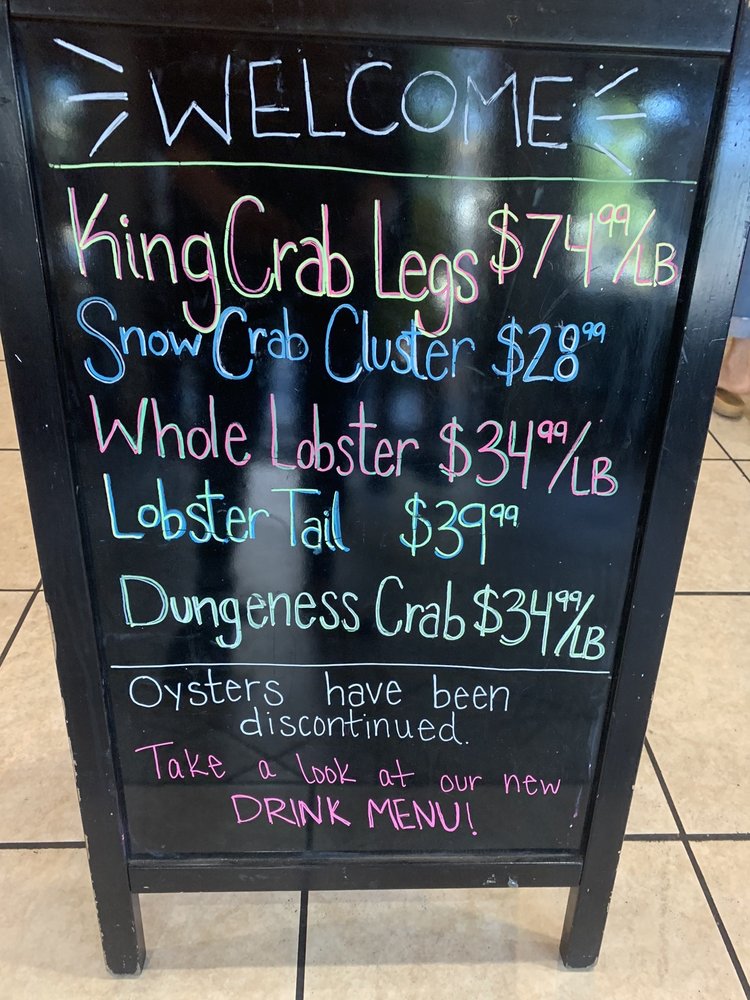 WELCOME
King Crab Legs $74.99/LB
Snow Crab Cluster $28.99
Whole Lobster $34.99/LB
Lobster Tail $39.99
Dungeness Crab $34.99/LB
Oysters have been
discontinued.
Take a look at our new
DRINK MENU!